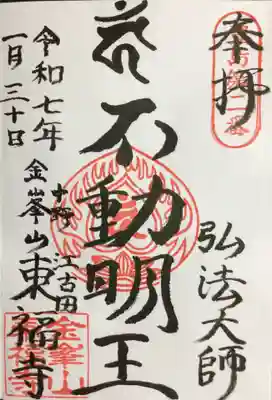 奉拝
弘法大師
不動明王
中野 江古田
金峯山 東福寺
令和七年
一月三十日